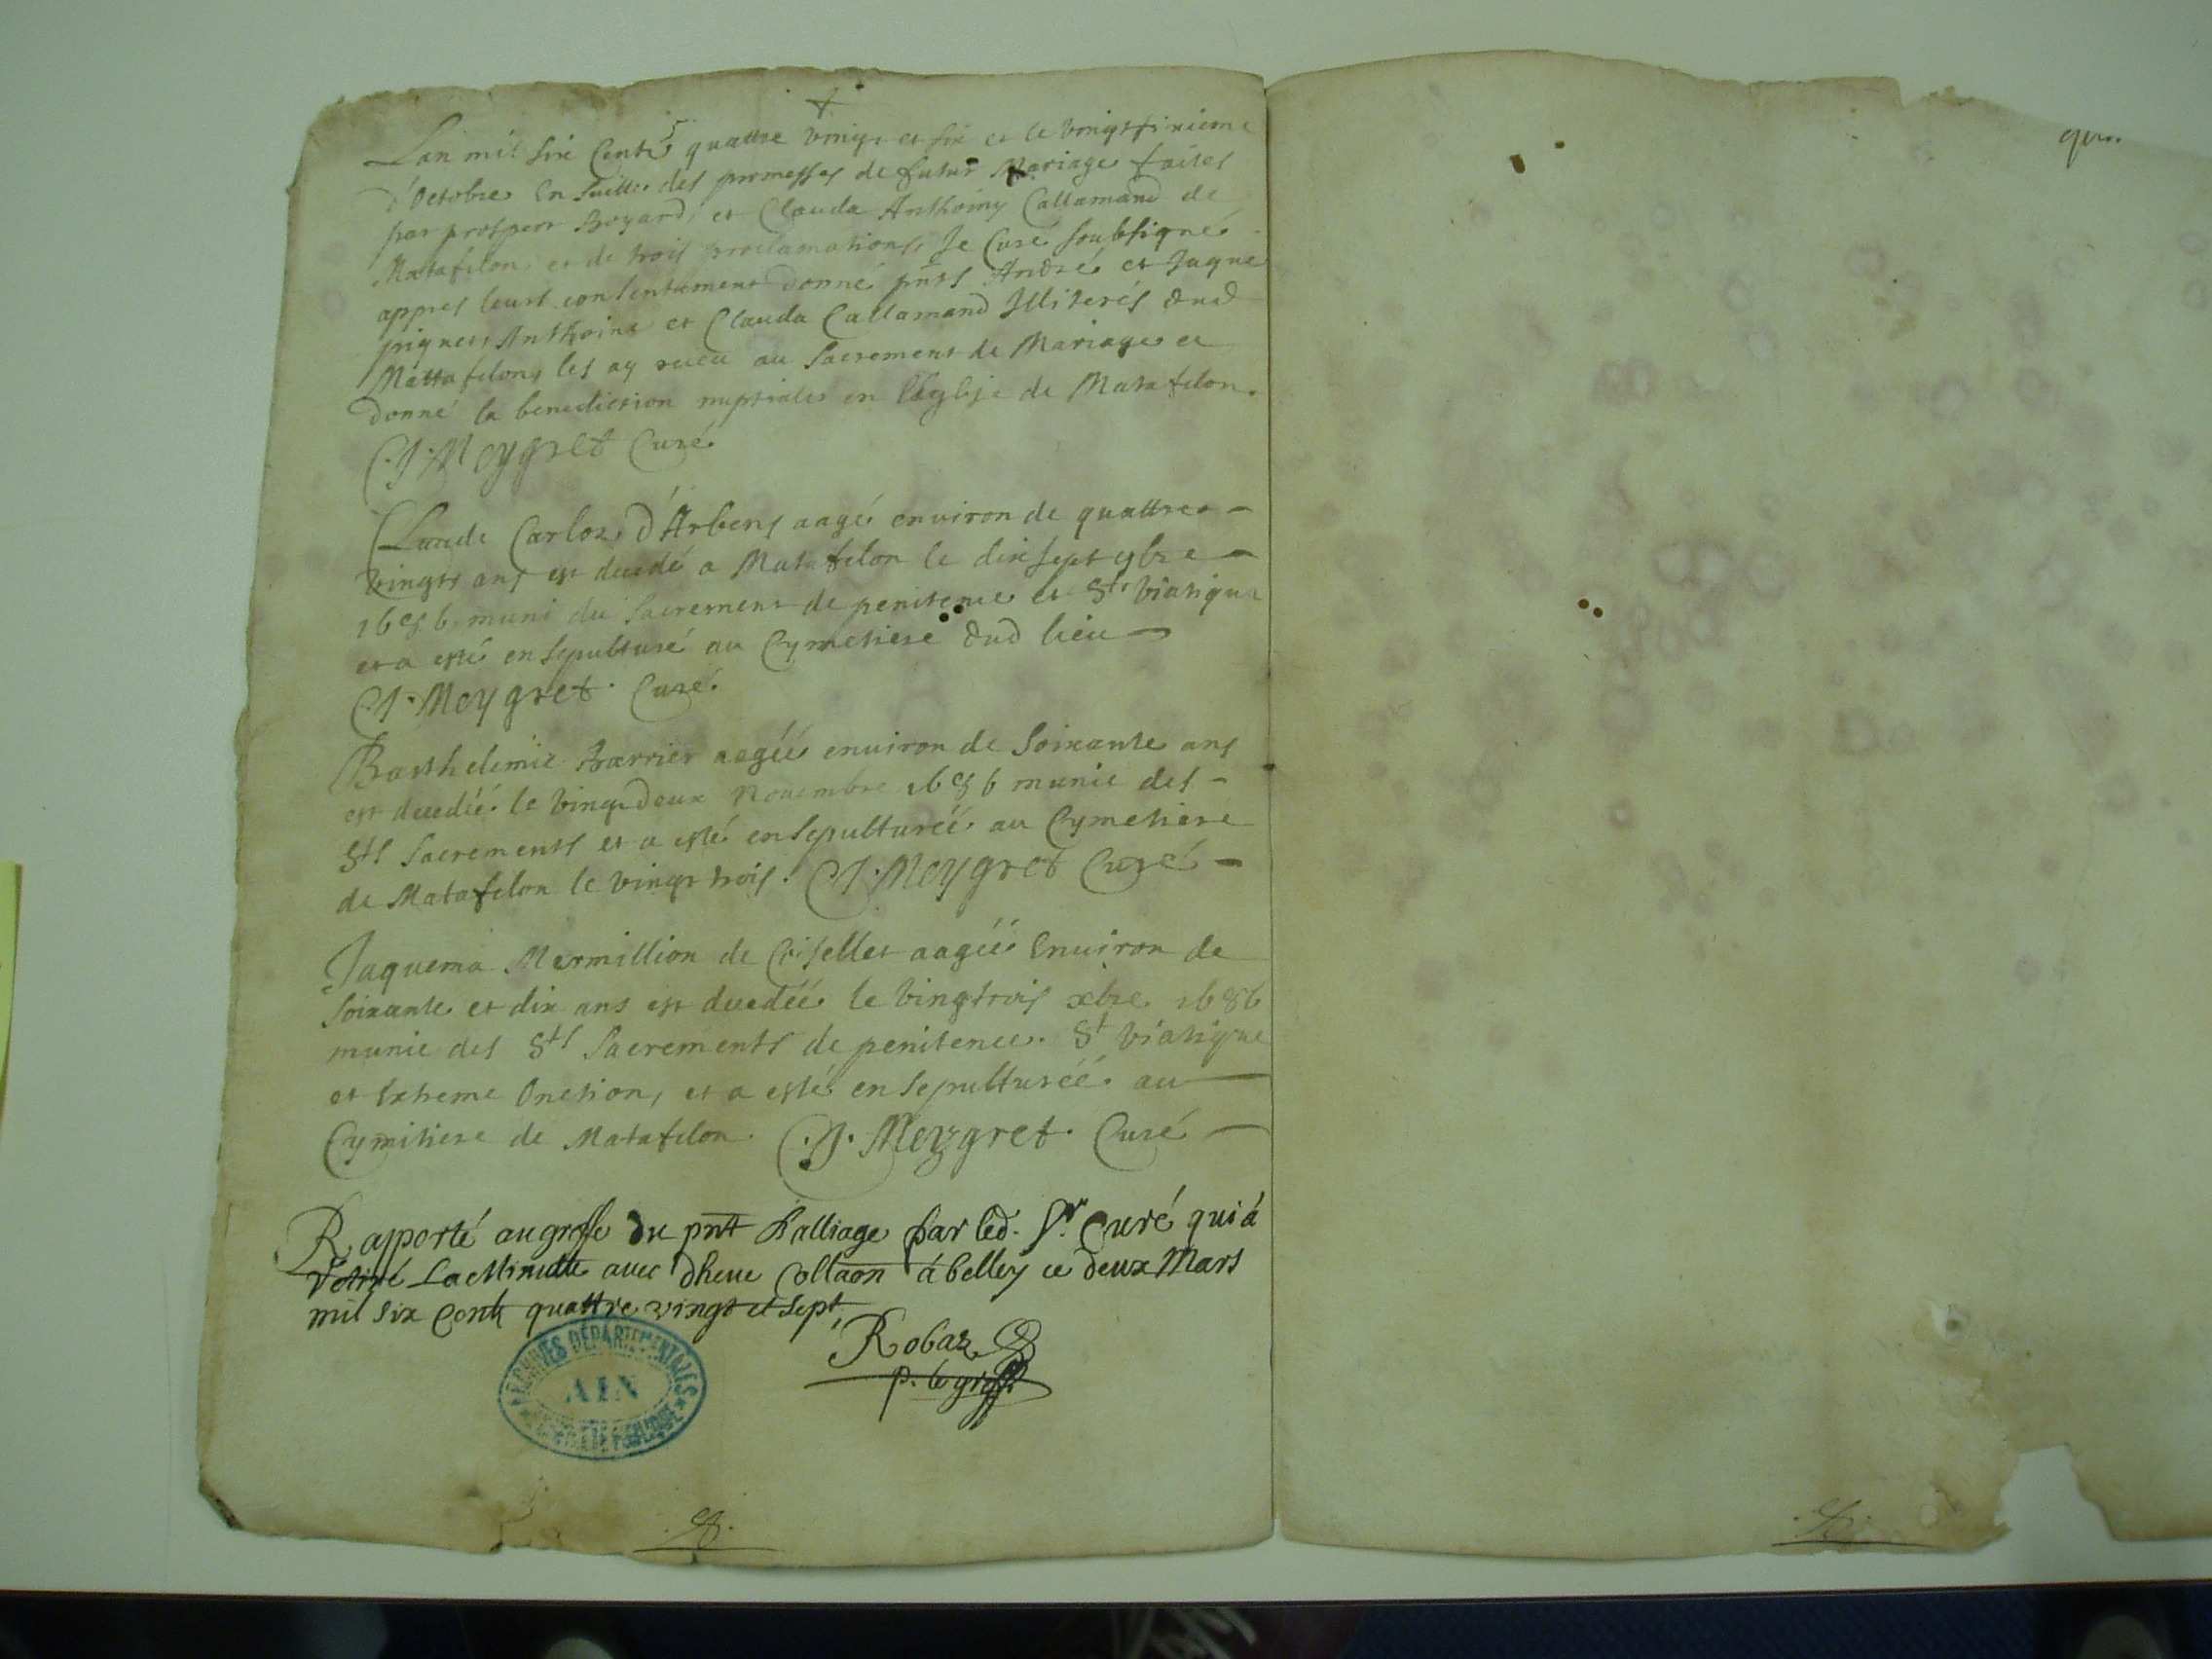 L'an mil six Cents quattre vingt et six et le vingtsixieme
d'Octobre En suitte des promesses de futur Mariage faites
par prosper Boyard, et Clauda Anthoiny Callamand de
Matafelon, et de trois proclamations Je Curé soubsigné
appres leurs consentement donné pnts André et Jaque
Anthoine et Clauda Callamand Illiterés dud
Mattafelon, les ay receu au Sacrement de Mariage et
donné la benediction nuptiale en l'Eglise de Matafelon.
C.J. Meygret Curé
Claude Carloz d'Arbens aagé environ de quattre
vingts ans est decedé a Matafelon le dix sept 9bre
1686 muni du Sacrement de penitence et St viatique
et a esté ensepulturé au Cymetiere dud lieu
C.J. Meygret. Curé.
Barthelemie Barrier aagéé environ de Soixante ans
est decedéé le vingt deux Novembre 1686 munie des
Sts Sacrements et a esté ensepulturéé au Cymetiere
de Matafelon le vingt trois. C.J. Meygret Curé
Jaquema Mermillion de Chisselles aagéé Environ de
soixante et dix ans est decedéé le vingtrois xbre 1686
munie des Sts Sacrements de penitence. St viatique
et Extreme Onction, et a esté ensepulturéé au
Cymitiere de Matafelon. C.J. Meygret. Curé
Rapporté au greffe du pnt Balliage par led. Sr. Curé qui à
retiré La Minutte avec dheue Collaon à belley ce deux Mars
mil six Cents quattre vingt et sept
Robaz
p. le greffe
ARCHIVES DÉPARTEMENTALES
AIN
quo